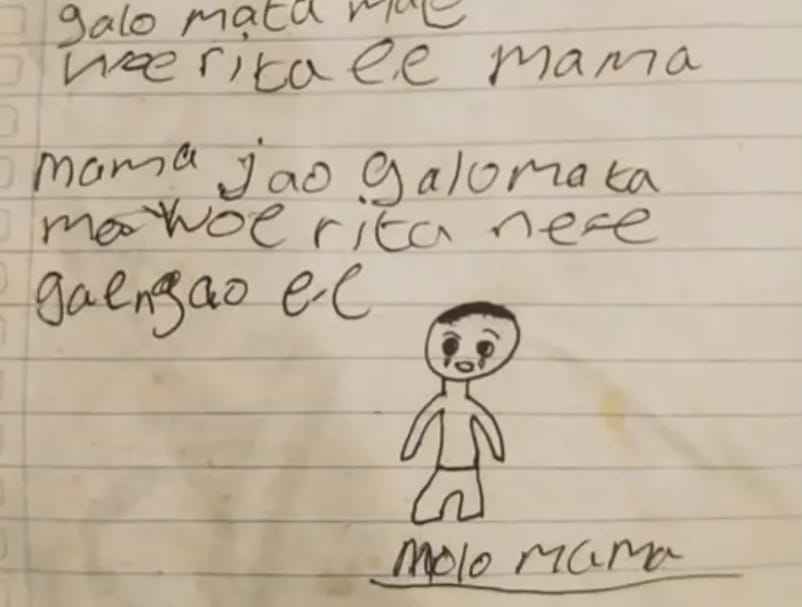 galo mata mae
woe rita ee mama
mama jao galo mata
mae woe rita nee
gae ngao ee
molo mama